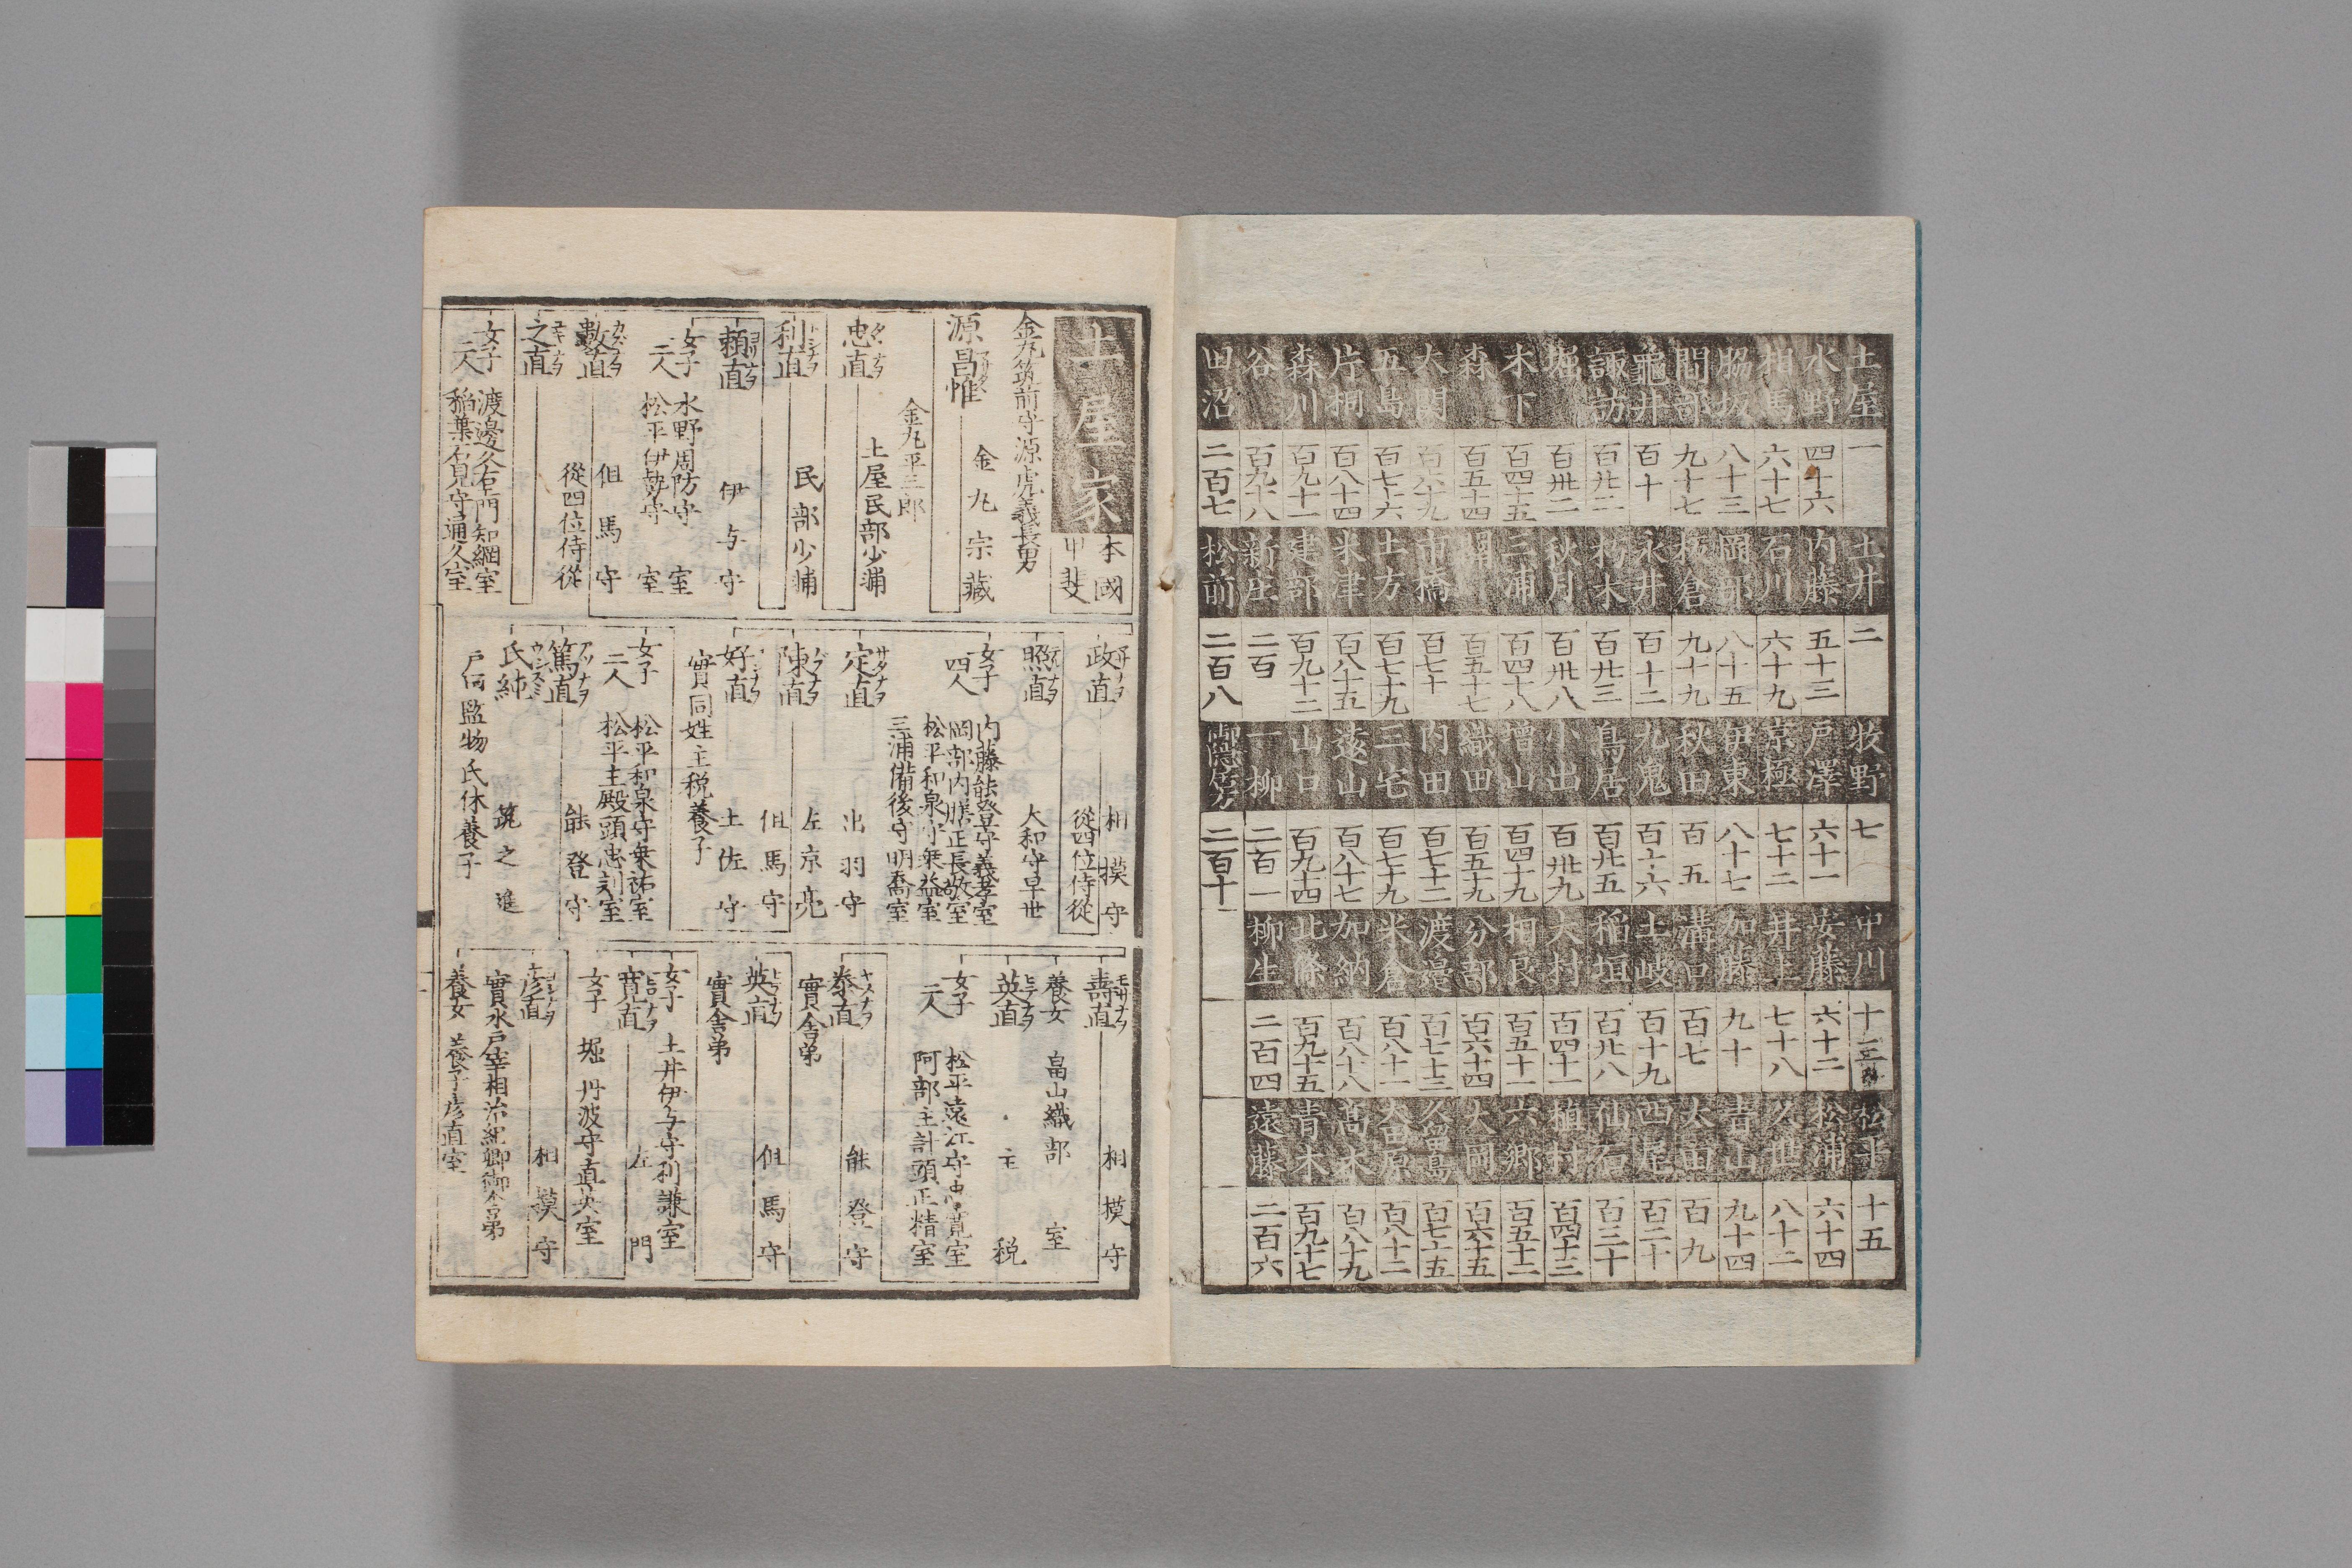 土屋 一
水野 四十六
相馬 六十七
脇坂 八十三
間部 九十七
龜井 百十
諏訪 百廿二
堀 百卅二
木下 百四十五
森 百五十四
大関 百六十九
五島 百七十六
片桐 百八十四
森川 百九十一
谷 百九十八
田沼 二百七
土井 二
内藤 五十三
石川 六十九
岡部 八十五
朽倉 九十九
永井 百十二
朽木 百廿三
秋月 百卅八
三浦 百四十八
百五十七
市橋 百七十
土方 百七十九
米津 百八十五
建部 百九十二
新庄 二百
松前 二百八
牧野 七
戸澤 六十一
京極 七十二
伊東 八十七
秋田 百五
九鬼 百十六
鳥居 百廿五
小出 百卅九
増山 百四十九
織田 百五十九
内田 百七十二
三宅 百七十九
遠山 百八十七
山口 百九十四
一柳 二百一
御隠居方 二百十
中川 十三
安藤 六十二
井上 七十八
加藤 九十
溝口 百七
土岐 百十九
稲垣 百廿八
大村 百四十一
相良 百五十一
分部 百六十四
渡邉 百七十三
米倉 百八十一
加納 百八十八
北條 百九十五
柳生 二百四
松平 十五
松浦 六十四
久世 八十二
青山 九十四
太田 百九
西尾 百二十
仙石 百三十
植村 百四十三
六郷 百五十二
大岡 百六十五
久留島 百七十五
大田原 百八十二
髙木 百八十九
青木 百九十七
遠藤 二百六
土屋家 本國 甲斐
金丸筑前守源虎義長男
源昌惟 金丸宗藏
金丸平三郎
忠直 タヾナヲ 土屋民部少輔
利直 トシナヲ 民部少輔
頼直 ヨリナヲ 伊与守
女子 二人 水野周防守 室
松平伊勢守 室
數直 カズナヲ 但馬守
從四位侍從
之直 ユキナヲ
女子 二人 渡邊久右エ門知綱室
稲葉石見守通久室
政直 マサナヲ 相模守
從四位侍從
照直 テルナヲ 大和守早世
女子 四人 内藤能登守義孝室
岡部内膳正長敬室
松平和泉守乗益室
三浦備後守明喬室
定直 サダナヲ 出羽守
陳直 ノブナヲ 左京亮
好直 ヨシナヲ 但馬守
土佐守
實同姓主税養子
女子 二人 松平和泉守乗祐室
松平主殿頭忠刻室
篤直 アツナヲ 能登守
氏純 ウジズミ 筑之進
戸田監物氏休養子
壽直 相模守
養女 畠山織部 室
英直 ヒデナヲ 主税
女子 二人 松平遠江守忠寛室
阿部主計頭正精室
泰直 ヤスナヲ 能登守
實舎弟
英直 ヒデナヲ 但馬守
實舎弟
女子 土井伊与守利謙室
寛直 ヒロナヲ 左門
女子 堀丹波守直央室
彦直 ヨシナヲ 相模守
實水戸宰相治紀卿御舎弟
養女 養子彦直室